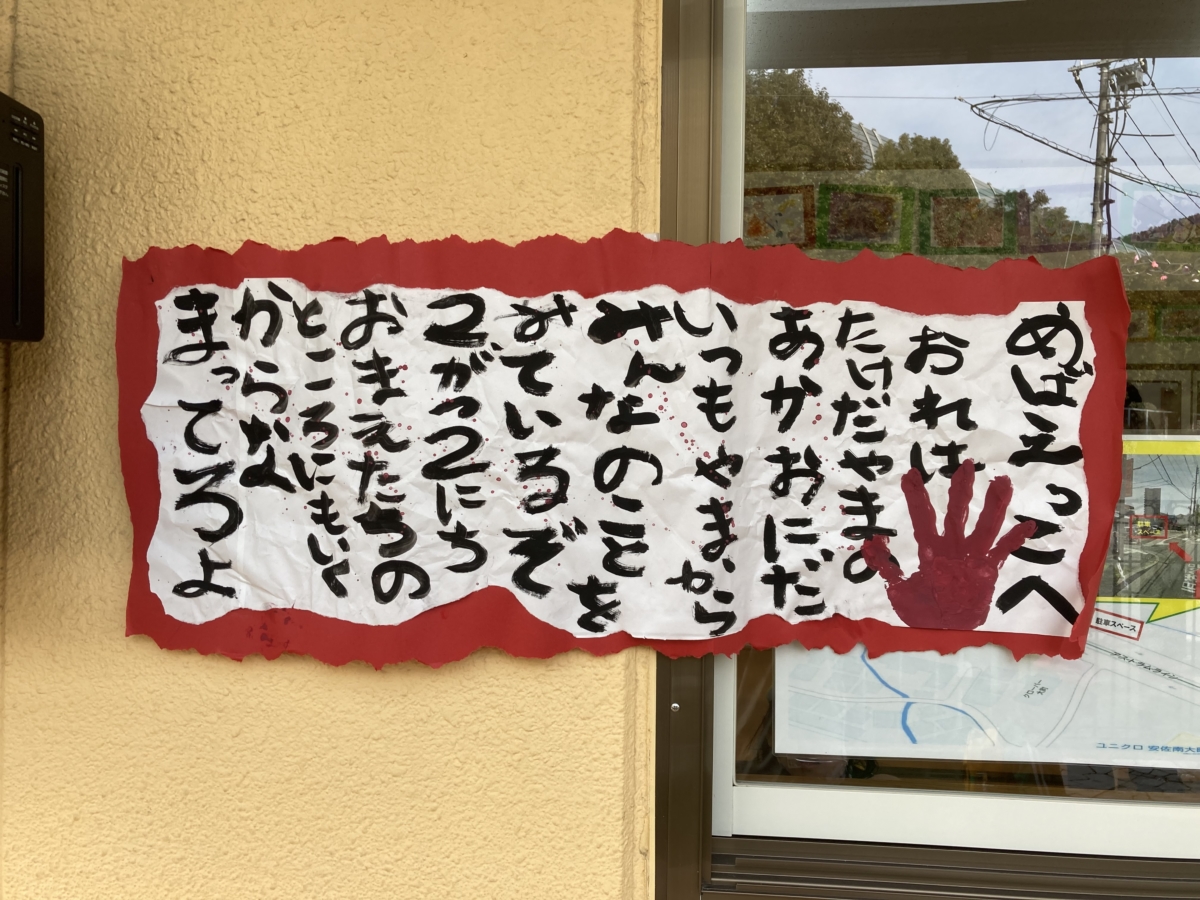 めばえっこへ
おれは
たけだやまの
あかおにだ
いつもやまから
みんなのことを
みているぞ
2がつ2にち
おまえたちの
ところにもいく
からな
まってろよ
駐車スペース
アストラムライン
ユニクロ 安佐南大